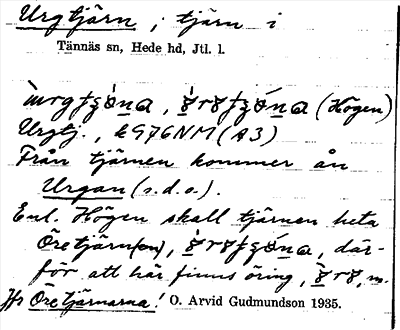 Urgtjärn, tjärn i
Tännäs sn, Hede hd, Jtl. l.
(Högen)
Urgtj., k976NM (A3)
Från tjärnen kommer ån
Urgan (s.d.o.).
Enl. Högen skall tjärnen heta
Öretjärn(en), där-
för att här finns öring,
Jfr Öretjärnarna! O. Arvid Gudmundson 1935.